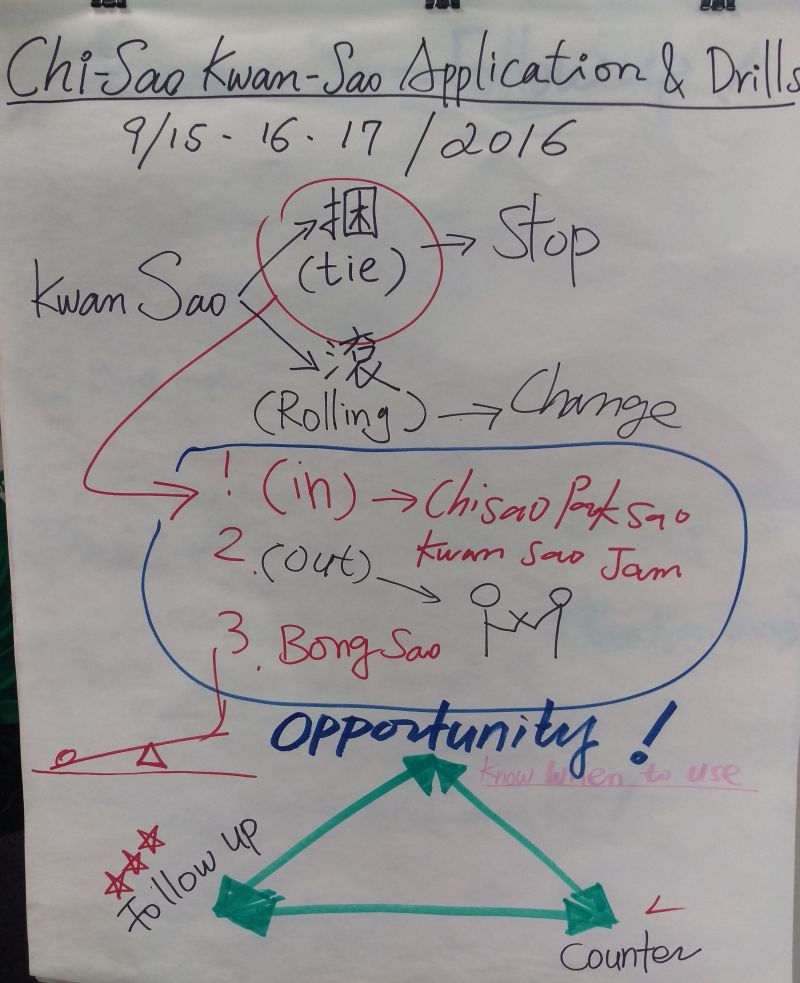 Chi-Sao Kwan-Sao Application & Drills
9/15-16-17/2016
捆
(tie) → Stop
Kwan Sao
滾
(Rolling) → Change
1 (in) → Chisao Pak Sao
Kwan Sao Jam
2. (out)
3. Bong Sao
Opportunity!
Know When to use
Follow up
Counter